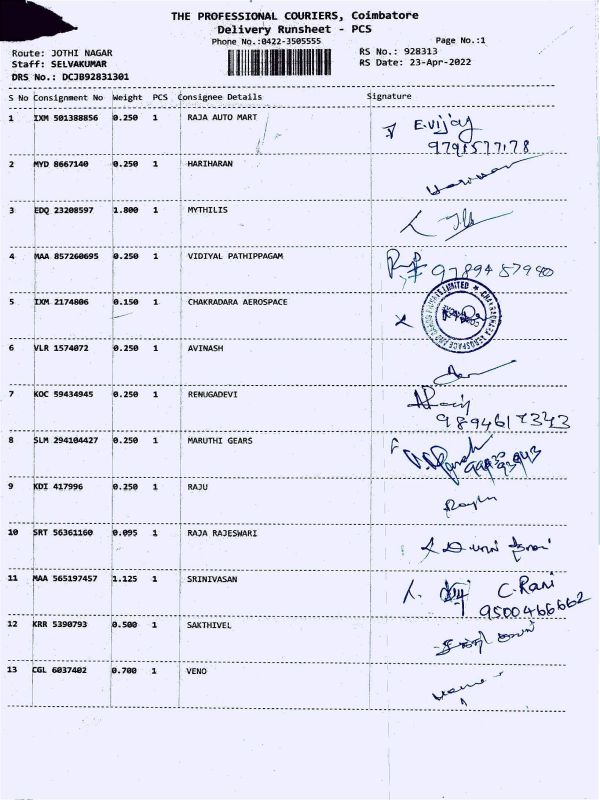 THE PROFESSIONAL COURIERS, Coimbatore
Delivery Runsheet - PCS
Phone No.:0422-3505555
Page No.:1
Route: JOTHI NAGAR
RS No.: 928313
Staff: SELVAKUMAR
RS Date: 23-Apr-2022
DRS No.: DCJB92831301
S No Consignment No Weight PCS Consignee Details Signature
1 IXM 501388856 0.250 1 RAJA AUTO MART E.vijay
2 MYD 8667140 0.250 1 HARIHARAN
3 EDQ 23208597 1.800 1 MYTHILIS
4 MAA 857260695 0.250 1 VIDIYAL PATHIPPAGAM
5 IXM 2174806 0.150 1 CHAKRADARA AEROSPACE
6 VLR 1574072 0.250 1 AVINASH
7 KOC 59434945 0.250 1 RENUGADEVI
8 SLM 294104427 0.250 1 MARUTHI GEARS
9 KDI 417996 0.250 1 RAJU
10 SRT 56361160 0.095 1 RAJA RAJESWARI
11 MAA 565197457 1.125 1 SRINIVASAN C.Rani
9500466662
12 KRR 5390793 0.500 1 SAKTHIVEL
13 CGL 6037402 0.700 1 VENO